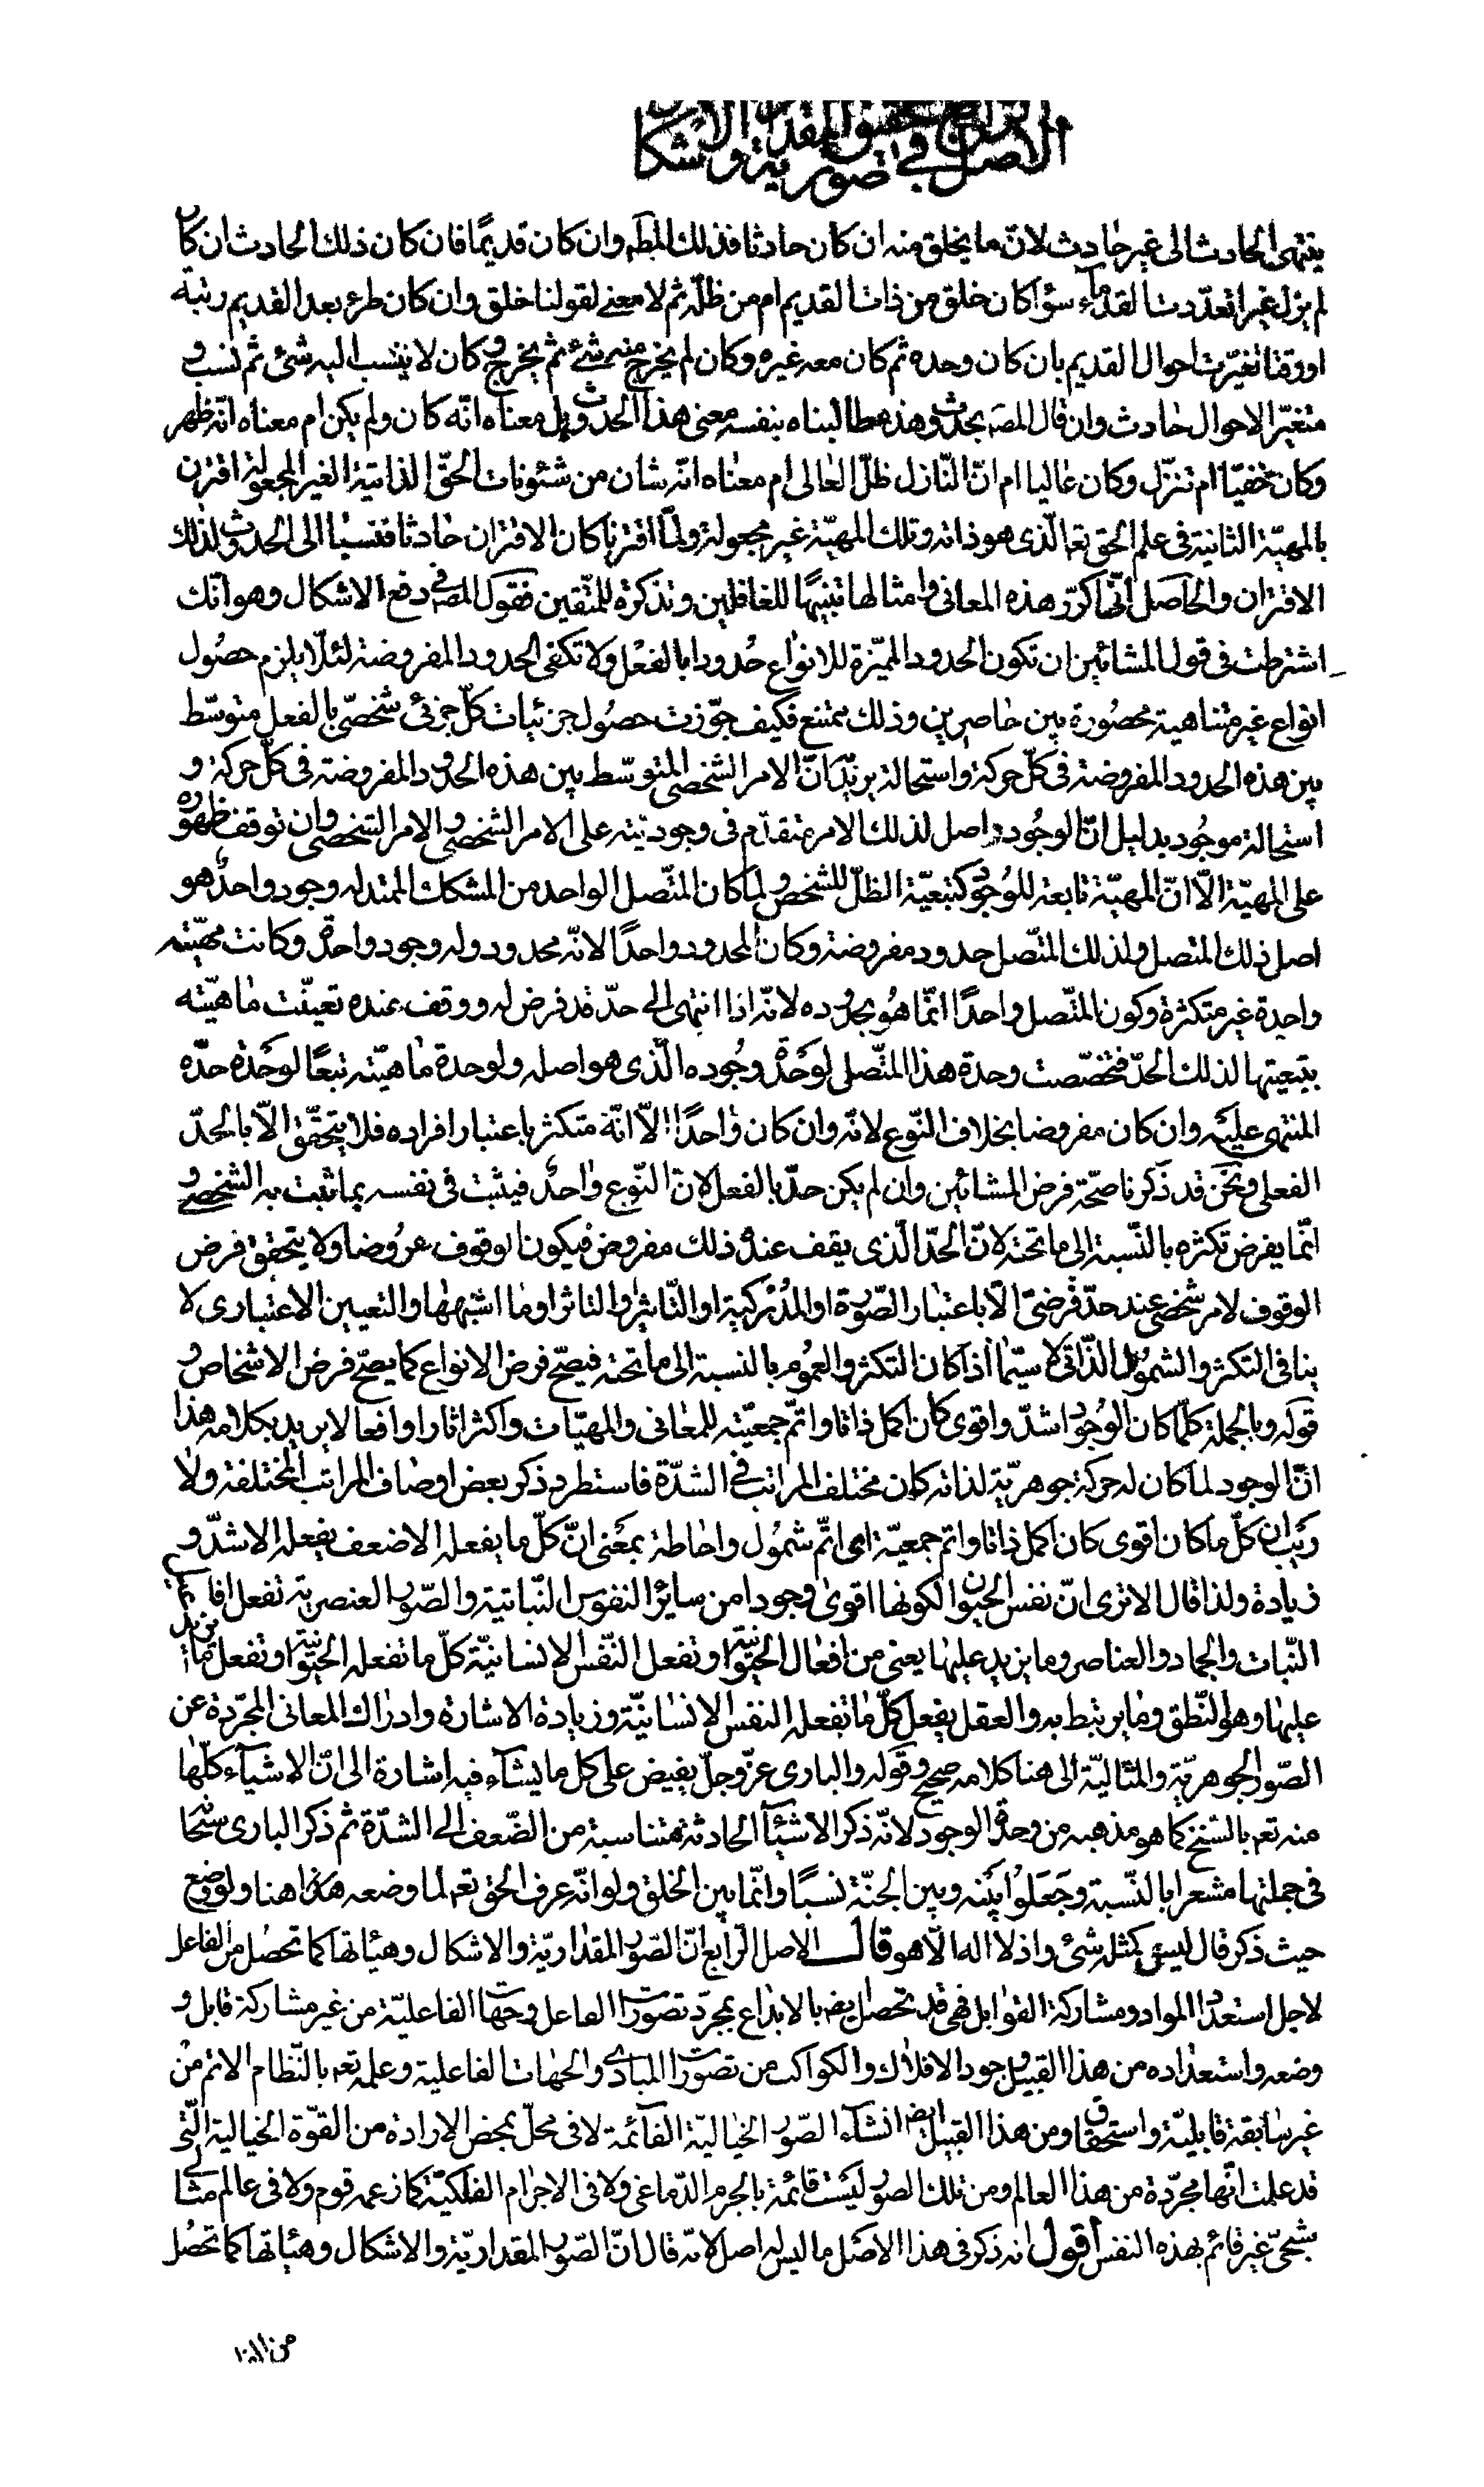 الاصل الرابع في تحقيق الصور المقدارية والاشكال
ينتهى الحادث الى غير حادث لانّ ما يخلق منه ان كان حادثا فذلك المط وان كان قديمًا فان كان ذلك الحادث ان كان
لم يزل غيرا تعدّدت القدمآء سوٓاء كان خلق من ذات القديم ام من ظلّه ثم لا معنى لقولنا خلق وان كان طرء بعد القديم رتبة
او وقتا تغيّرت احوال القديم بان كان وحده ثم كان معه غيره وكان لم يخرج منه شئ ثم يخرج وكان لا ينسب اليه شئ ثم نسب و
متغيّر الاحوال حادث وان قال المصّ بحدوث وهذه مطالبناه بنفسه معنى هذا الحدوث هل معناه انّه كان ولم يكن ام معناه انّه ظهر
وكان خفيّا ام تنزّل وكان عاليا ام انّ النّازل ظلّ العالى ام معناه انّه شان من شئونات الحقّ الذاتيّة الغير المجعولة اقترن
بالمهيّة الثانية فى علم الحق تع الّذى هو ذاته وتلك المهيّة غير مجعولة ولمّا اقترنا كان الاقتران حادثا فنسبا الى الحدوث لذلك
الاقتران والحاصل انّما اكرّر هذه المعانى وامثالها تنبيهًا للغافلين وتذكرة للمتّقين فقول المصّ فى دفع الاشكال وهو انّك
اشترطت فى قول المشائين ان تكون الحدود المميّزة للانواع حدودا بالفعل ولا تكفى الحدود المفروضة لئلّا يلزم حصول
انواع غير متناهية محصورة بين حاصرين وذلك ممتنع فكيف جوّزت حصول جزئيات كلّ جزئى شخصّى بالفعل متوسّط
بين هذه الحدود المفروضة فى كلّ حركة واستحالة يريد انّ الامر الشخصى المتوسّط بين هذه الحدود المفروضة فى كلّ حركة و
استحالة موجود بدليل انّ الوجود اصل لذلك الامر متقدّم فى وجوديته على الامر الشخصى والامر الشخصى وان توقف ظهوره
على المهيّة الّا انّ المهيّة تابعة للوجود كتبعيّة الظلّ للشخص ولما كان المتّصل الواحد من المشككات الممتد له وجود واحد هو
اصل ذلك المتصل ولذلك المتّصل حدود مفروضة وكان المحدود واحدًا لانّه محدود وله وجود واحد وكانت مهيّته
واحدة غير متكثرة وكون المتّصل واحدًا انّما هو بحدوده لانّه اذا انتهى الى حدّ قد فرض له ووقف عنده تعيّنت ماهيّته
بتبعيتها لذلك الحدّ فتخصّصت وحدة هذا المتّصل لوحدة وجوده الّذى هو اصله ولوحدة ماهيّته تبعًا لوحدة حدّه
المنتهى عليه وان كان مفروضا بخلاف النّوع لانّه وان كان واحدًا الّا انّه متكثر باعتبار افراده فلا يتحقّق الّا بالحدّ
الفعلى ونحن قد ذكرنا صحّة فرض المشائين وان لم يكن حدّ بالفعل لانّ النّوع واحد فيثبت فى نفسه بما ثبت به الشخص و
انّما يفرض تكثره بالنّسبة الى ما تحته لانّ الحدّ الّذى يقف عند ذلك مفروض فيكون الوقوف عروضا ولا يتحقق فرض
الوقوف لامر شخصى عند حدّ فرضىّ الّا باعتبار الصّورة او المدركية او التّاثير والتاثر او ما اشبهها والتعيين الاعتبارى لا
ينافى التكثر والشمول الذّاتى لا سيّما اذا كان التكثر والعموم بالنسبة الى ما تحته فيصّح فرض الانواع كما يصّح فرض الاشخاص و
قوله وبالجملة كلّما كان الوجود اشدّ واقوى كان اكمل ذاتا واتمّ جمعيّته للمعانى والمهيّات واكثر اثارا وافعالا يريد بكلامه هذا
انّ الوجود لما كان له حركة جوهريّة لذاته كان مختلف المراتب فى الشدّة فاستطرد ذكر بعض اوصاف المراتب المختلفة ولا
ريب ان كلّ ما كان اقوى كان اكمل ذاتا واتم جمعيّة اى اتمّ شمول واحاطة بمعنى انّ كلّ ما يفعله الاضعف يفعله الاشدّ و
زيادة ولذا قال الا ترى انّ نفس الحيوان لكونها اقوى وجودا من ساير النفوس النّباتية والصّور العنصرية تفعل افاعيل
النّبات والجماد والعناصر وما يزيد عليها يعنى من افعال الحيوانية وتفعل النّفس الانسانيّة كلّ ما تفعله الحيوانيّة وتفعل ما يزيد
عليها وهو النّطق وما يرتبط به والعقل يفعل كلّ ما تفعله النفس الانسانيّة وزيادة الاشارة وادراك المعانى المجرّدة عن
الصّور الجوهريّة والمثاليّة الى هنا كلامه صحيح وقوله والبارى عزّ وجلّ يفيض على كل ما يشآء فيه اشارة الى انّ الاشيآء كلّها
منه تع بالسّنخ كما هو مذهبه من وحدة الوجود لانّه ذكر الاشيآء الحادثة متناسبة من الضّعف الى الشدّة ثم ذكر البارى سبحانه
فى جملتها مشعرا بالنّسبة وجعلوا بينه وبين الجنّة نسبًا وانّما بين الخلق ولو انّه عرف الحق تع لما وضعه هذا هنا ولو وضع
حيث ذكر قال ليس كمثله شئ واذ لا اله الّا هو قال الاصل الرّابع انّ الصّور المقداريّة والاشكال وهيئاتها كما تحصل من الفاعل
لاجل استعداد المواد ومشاركة القوابل فهى قد تحصل ايضا بالابداع بمجرّد تصورات الفاعل وجهات الفاعليّة من غير مشاركة قابل و
وضعه واستعداده من هذا القبيل وجود الافلاك والكواكب من تصورات المبادى والجهات الفاعلية وعلمه تع بالنّظام الاتم من
غير سابقة قابليّة واستحقاق ومن هذا القبيل ايض انشآء الصّور الخياليّة القآئمة لا فى محلّ بمحض الارادة من القوّة الخيالية الّتى
قد علمت انّها مجرّدة من هذا العالم ومن تلك الصور ليست قائمة بالجرم الدّماغى ولا فى الاجرام الفلكيّة كما زعمه قوم ولا فى عالم مثالى
شبحىّ غير قائم بهذه النفس اقول انه ذكر فى هذا الاصل ما ليس له اصل لانّه قال انّ الصّور المقداريّة والاشكال وهيئاتها كما تحصل